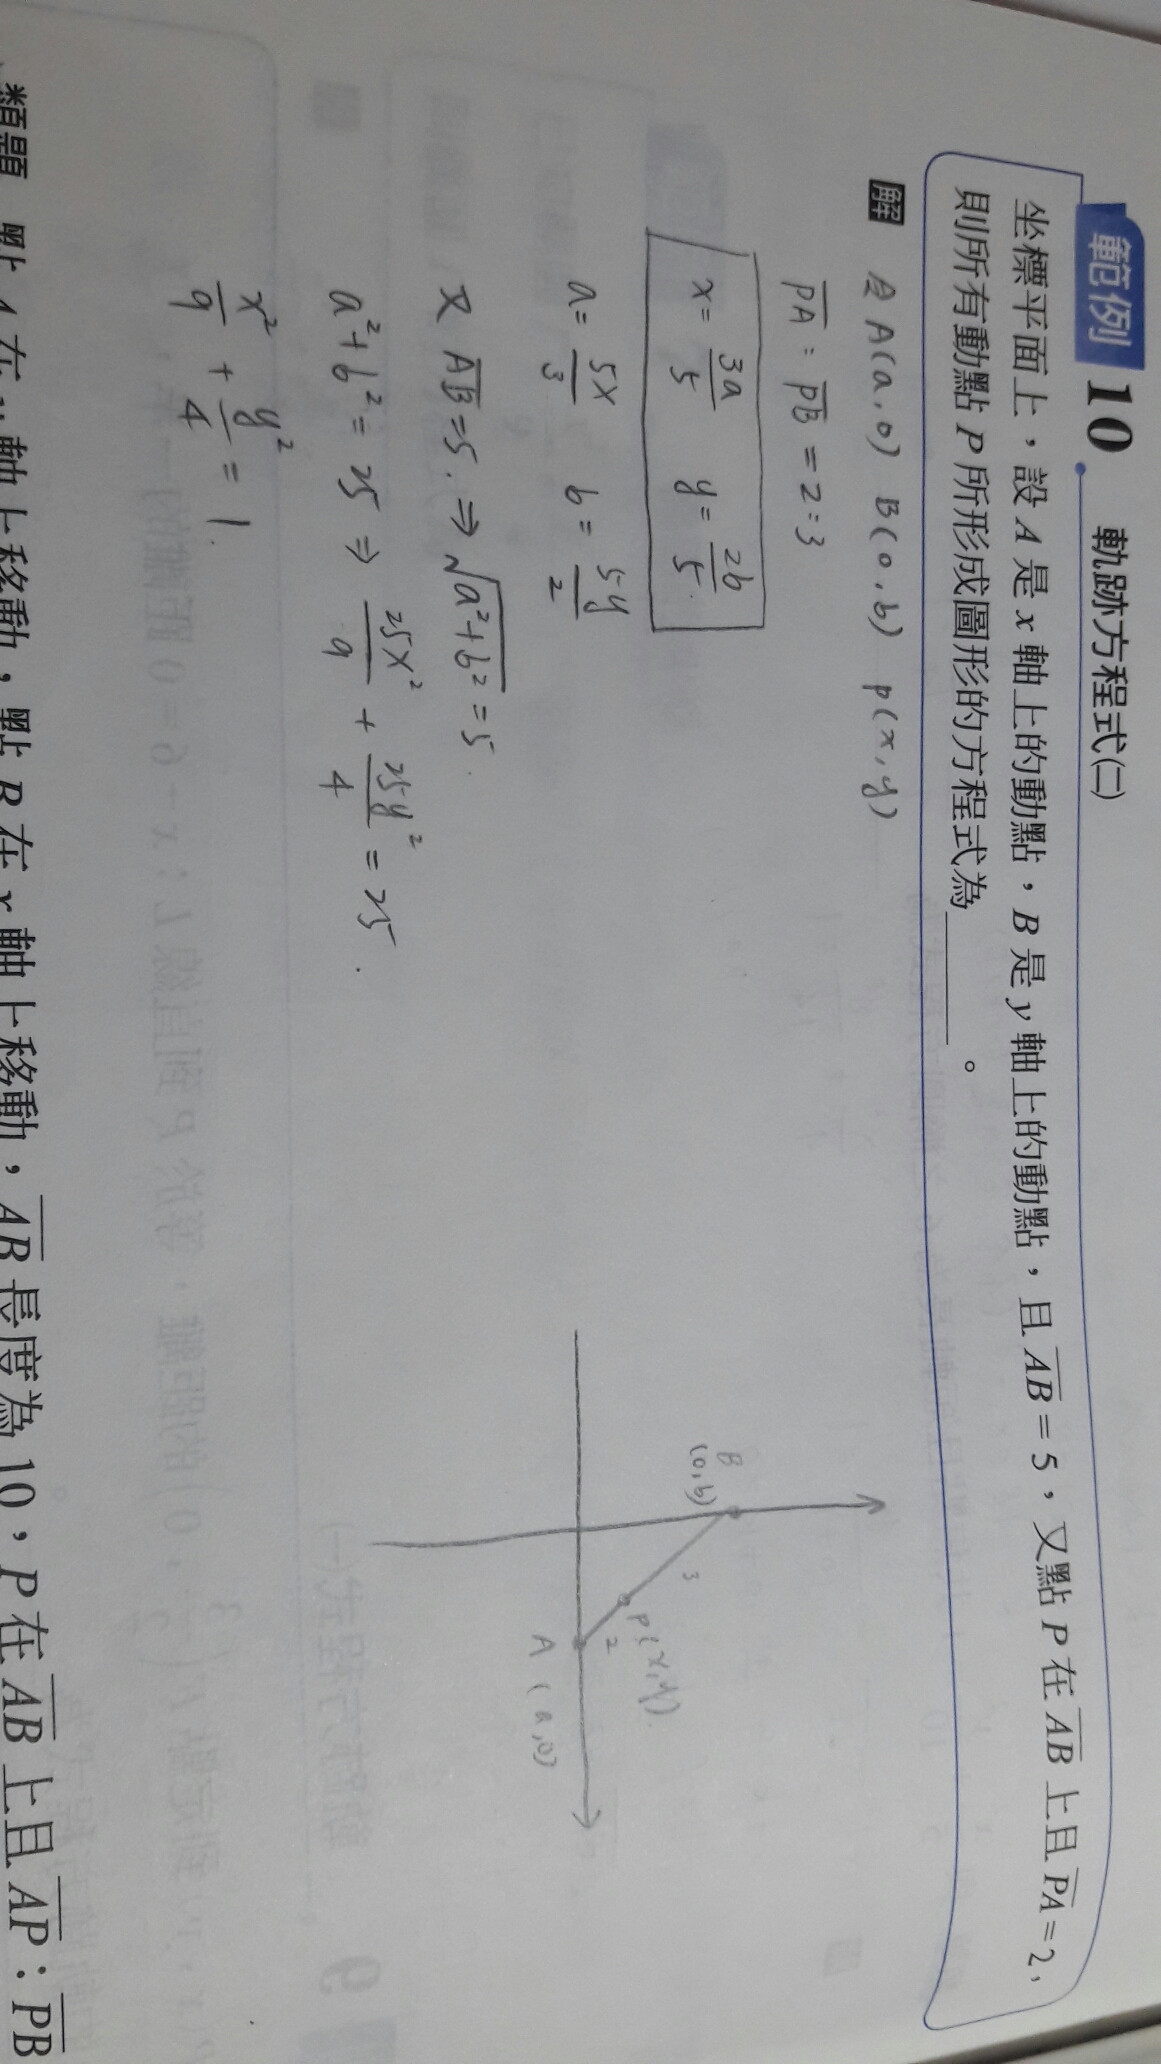 範例 10 軌跡方程式(二)
坐標平面上，設 A 是 x 軸上的動點，B 是 y 軸上的動點，且 AB = 5，又點 P 在 AB 上且 PA = 2，
則所有動點 P 所形成圖形的方程式為______。
解 令 A(a,0) B(0,b) P(x,y)
PA : PB = 2:3
x = 3a/5 y = 2b/5
a = 5x/3 b = 5y/2
又 AB = 5. ⇒ √(a²+b²) = 5.
a²+b² = 25 ⇒ 25x²/9 + 25y²/4 = 25.
x²/9 + y²/4 = 1.
B
(0,b)
3
P(x,y).
2
A (a,0)
類題 點 A 在 y 軸上移動，點 B 在 x 軸上移動，AB 長度為 10，P 在 AB 上且 AP : PB